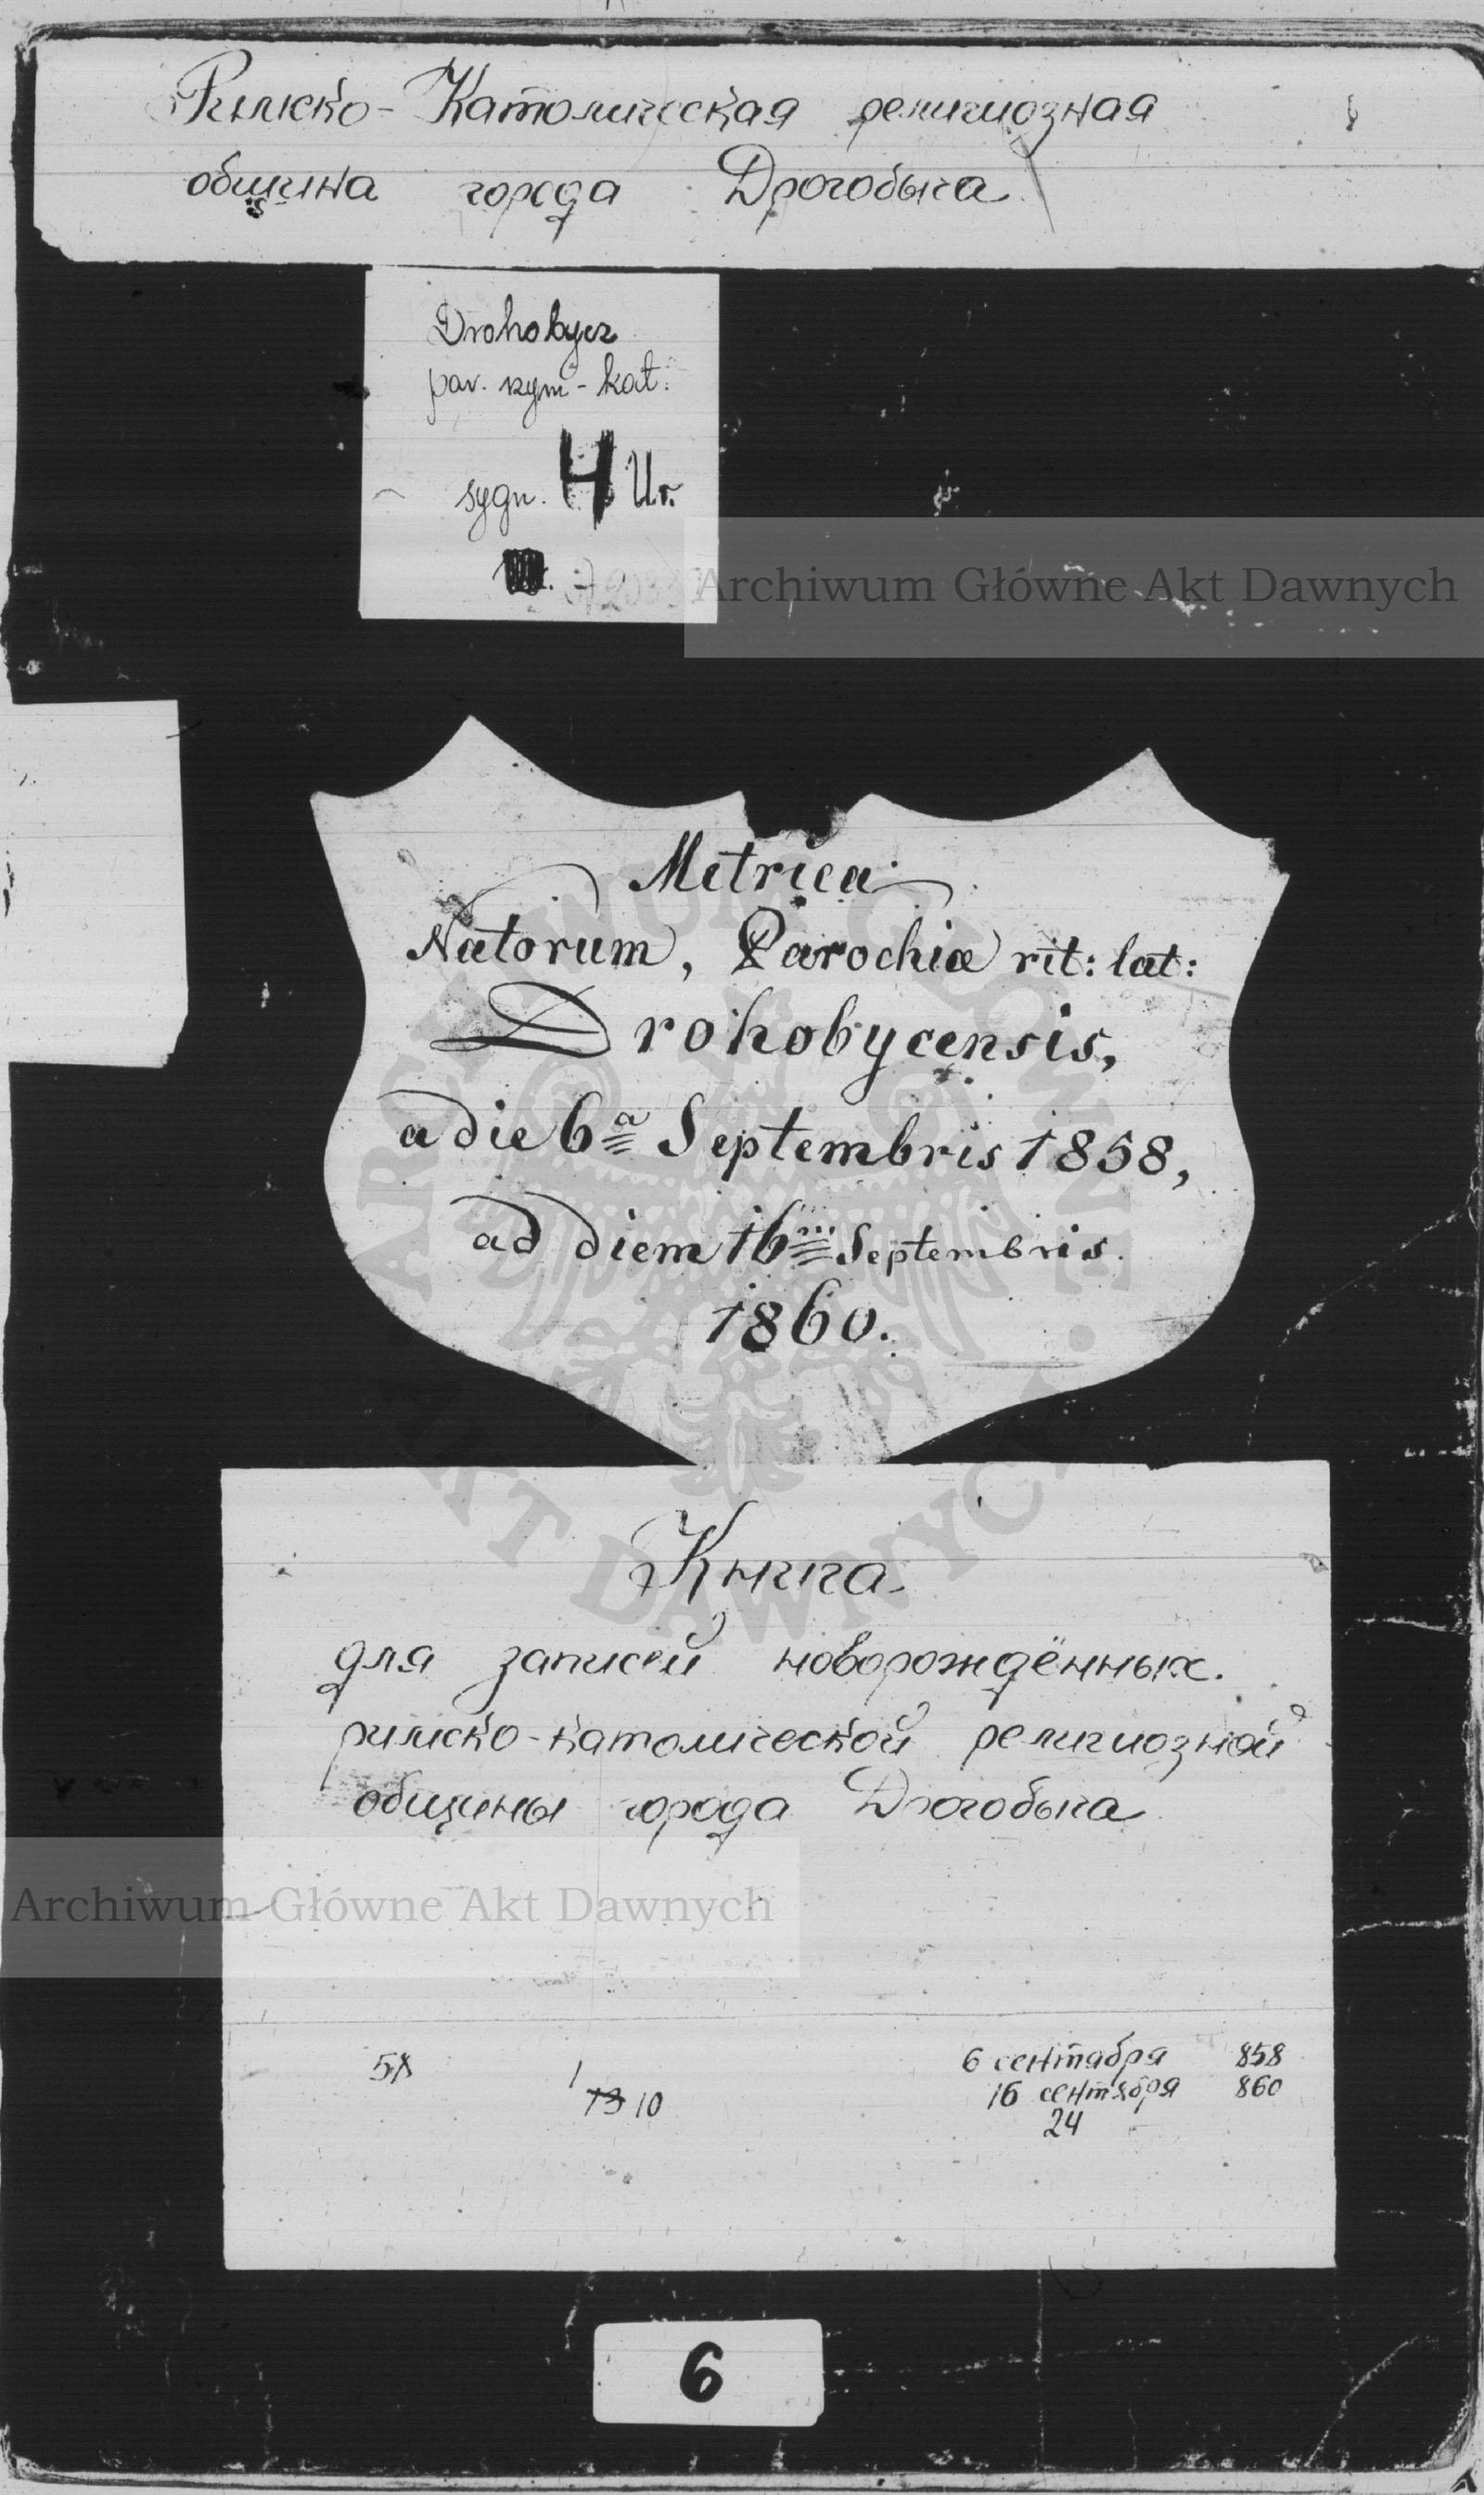 Римско-Католическая религиозная
община города Дрогобыча
Drohobycz
par. rzym-kat.
sygn. 4 Ur.
Archiwum Główne Akt Dawnych
Metrica
Natorum, Parochiæ rit: lat:
Drohobycensis,
a die 6ª Septembris 1858,
ad diem 16m Septembris
1860.
ARCHIWUM GŁÓWNE AKT DAWNYCH
Книга
для записей новорождённых
римско-католической религиозной
общины города Дрогобыча
Archiwum Główne Akt Dawnych
6 сентября 858
1
16 сентября 860
13 10
24
6